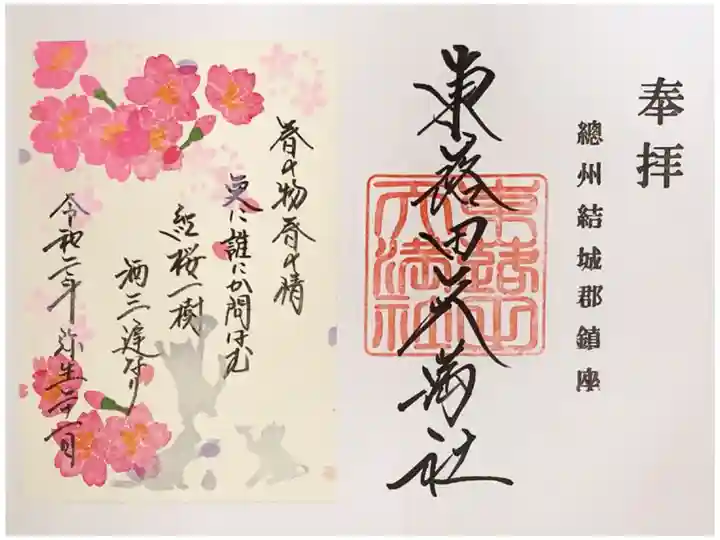 奉拝
總州結城郡鎮座
東蕗田天満社
東蕗田天満社
春の物春の情
更に誰にか問はむ
紅桜一樹
酒三遅なり
令和二年 弥生